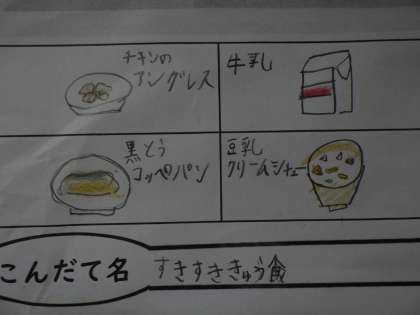 チキンの
アングレス
牛乳
黒とう
コッペパン
豆乳
クリームシチュー
こんだて名
すきすききゅう食